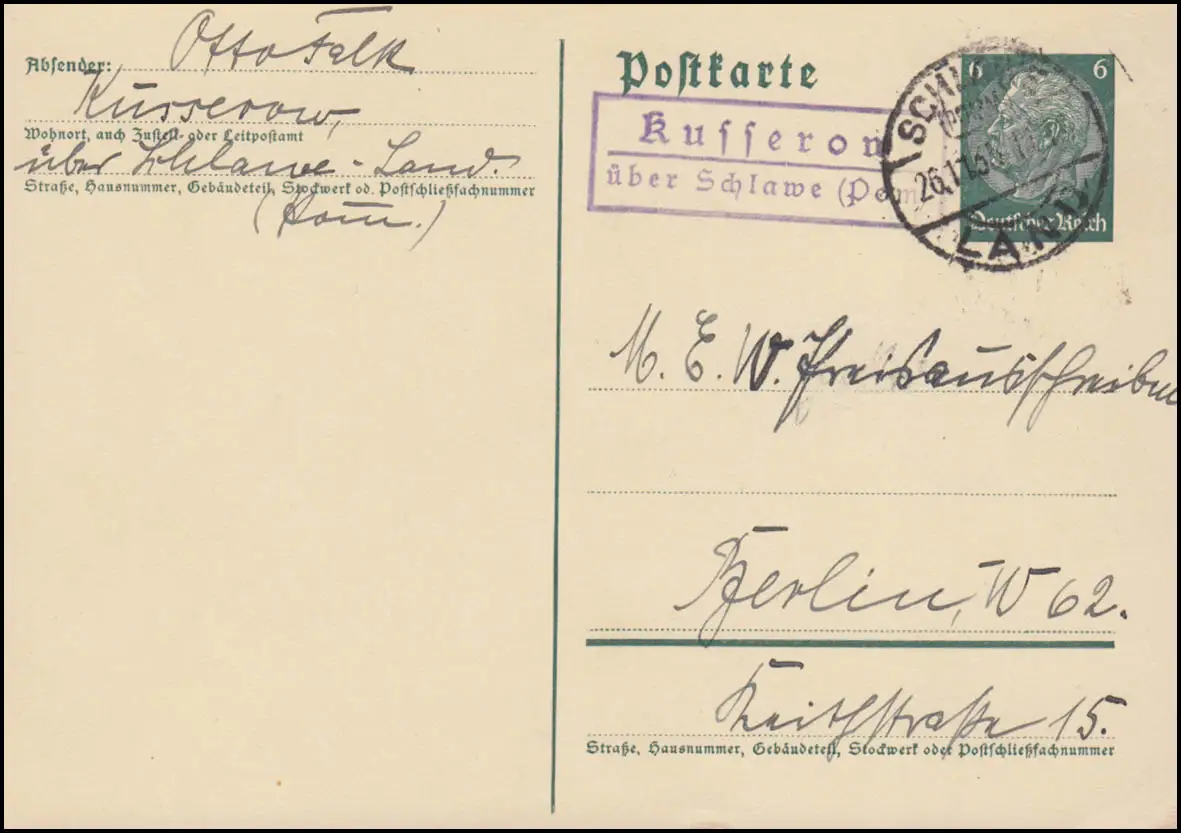 Otto Falk
Absender:
Kusserow,
Wohnort, auch Zustell- oder Leitpostamt
über Schlawe-Land.
Straße, Hausnummer, Gebäudeteil, Stockwerk od. Postschließfachnummer
(Pom.)
Postkarte
Kusserow
über Schlawe (Pom
6 6
LAND
Deutsches Reich
M. E. W. Preisausschreiben
Berlin, W 62.
Keithstraße 15.
Straße, Hausnummer, Gebäudeteil, Stockwerk oder Postschließfachnummer